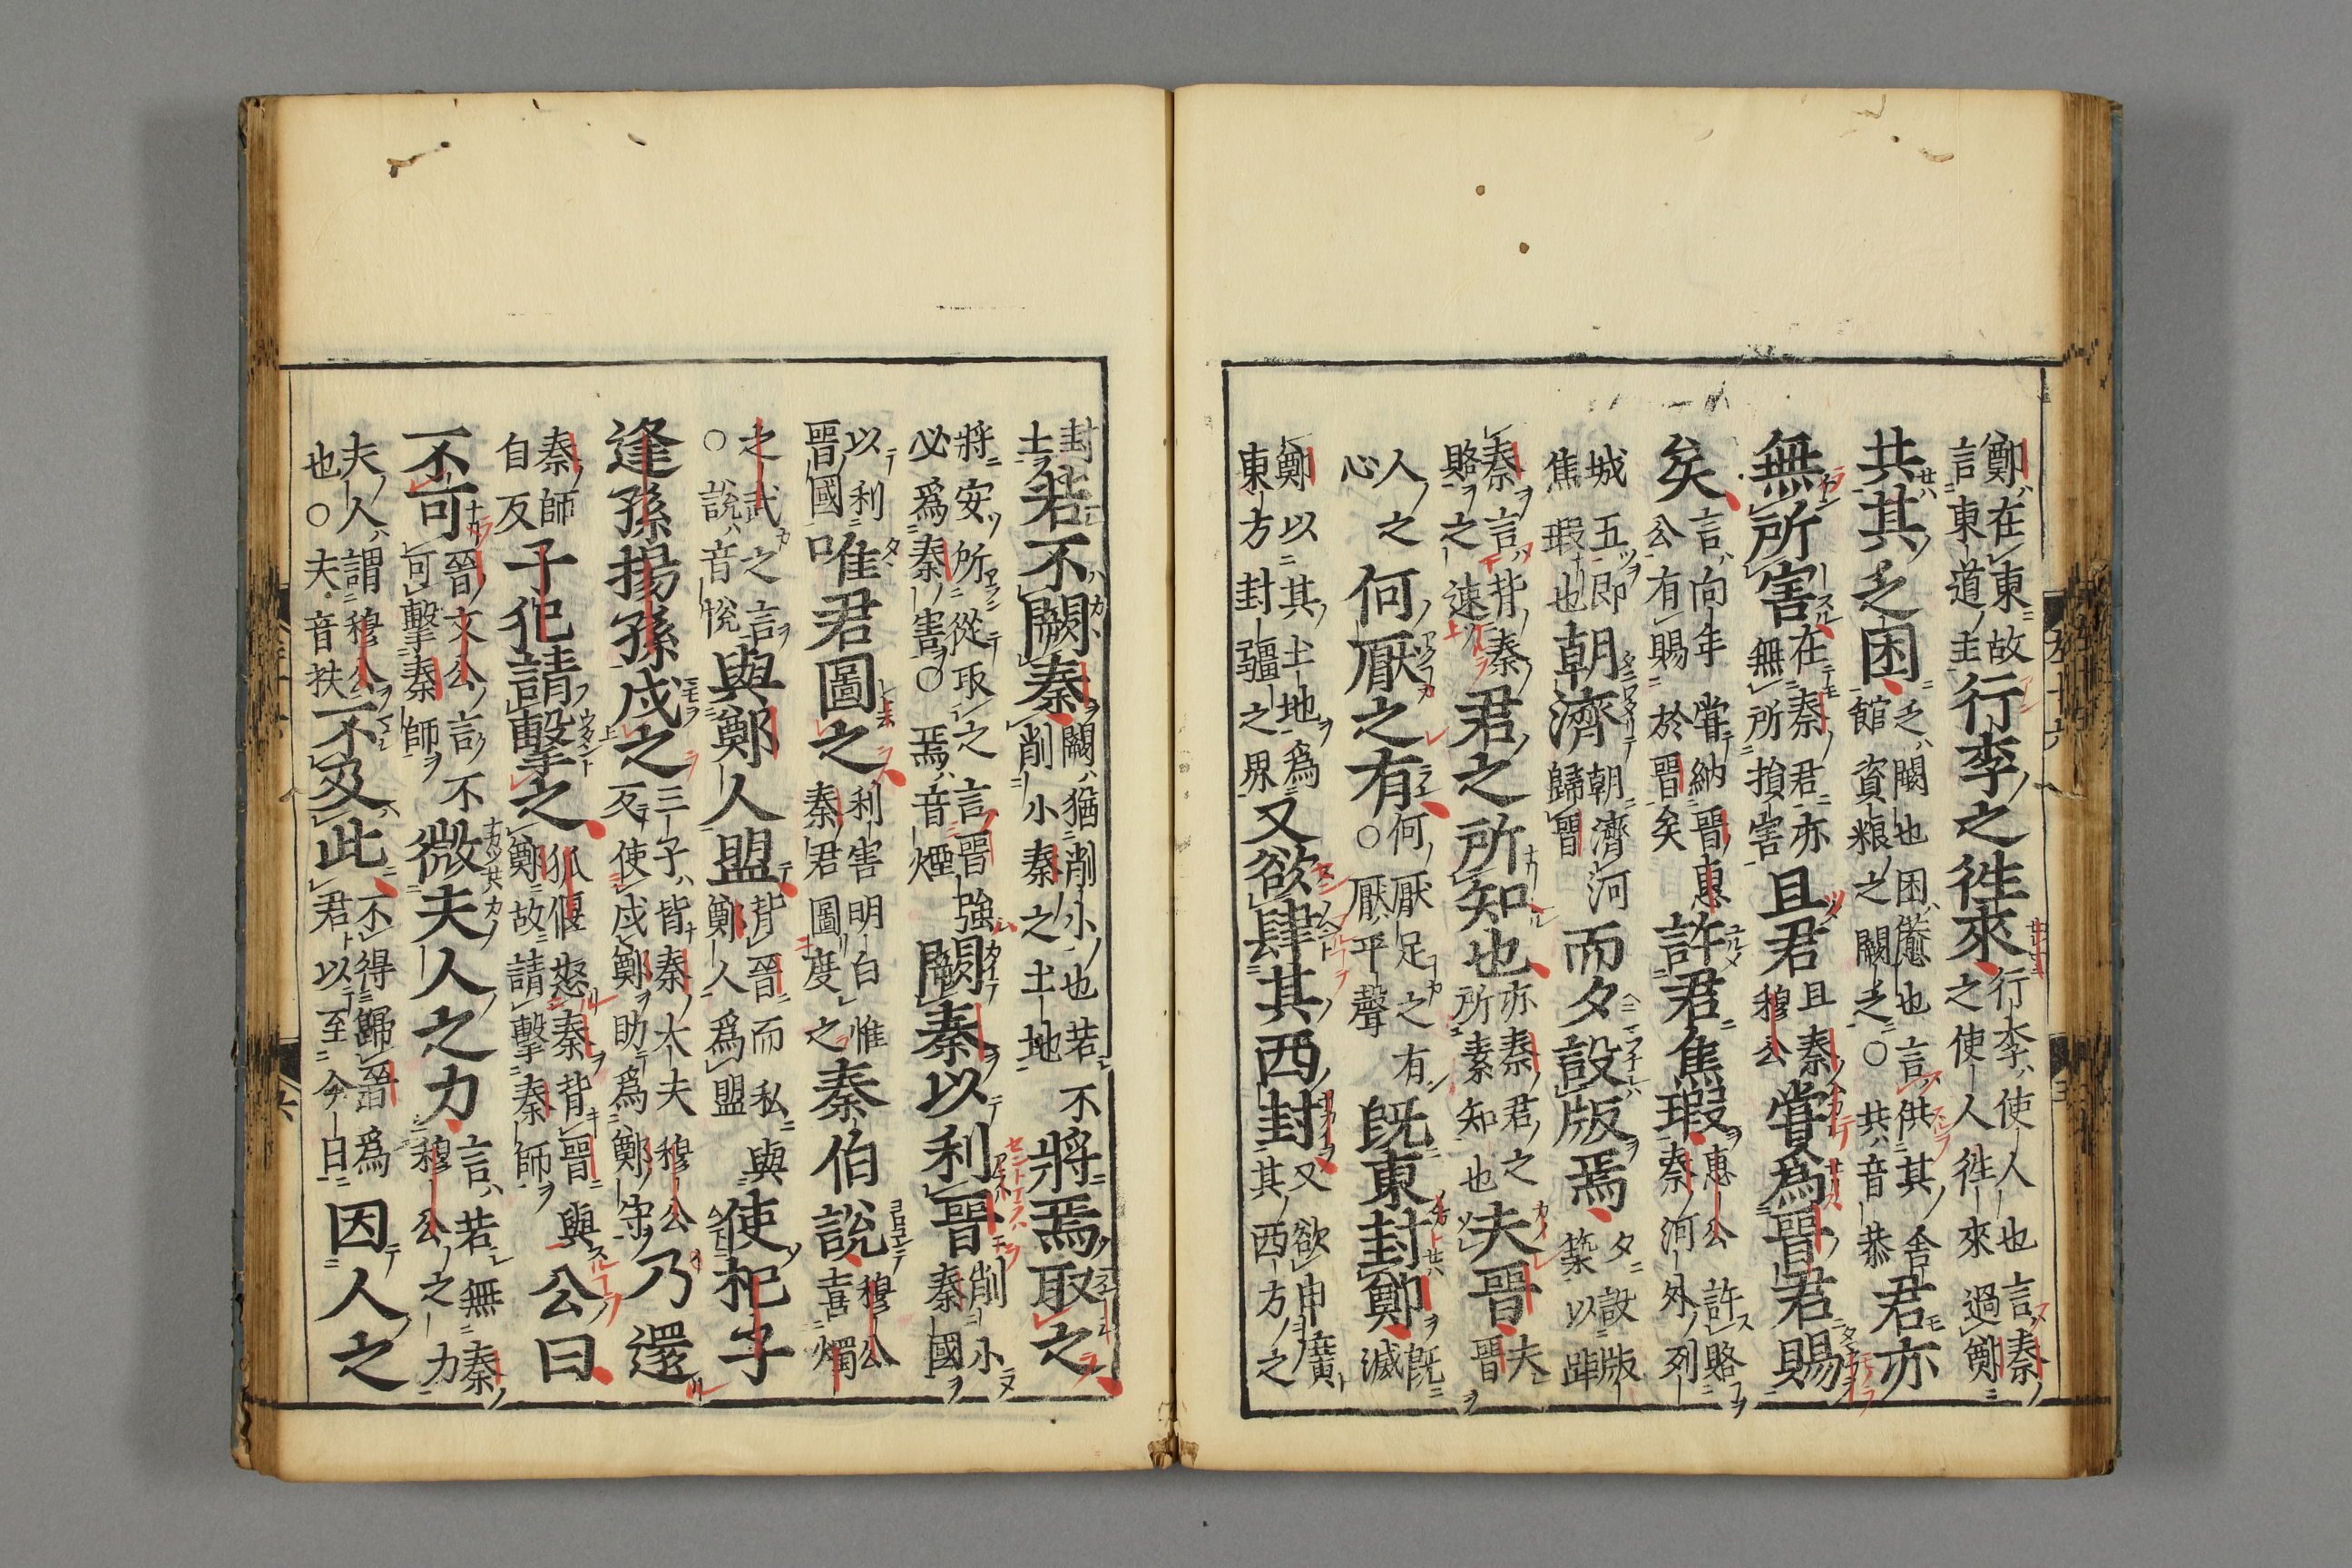 鄭在東故言東道主行李之徃來行李使人也言秦之使人徃來過鄭
共其乏困乏闕也困憊也言供其舍館資粮之闕乏○共音恭君亦
無所害在秦君亦無所損害且君且秦穆公甞爲晉君賜
矣言向年甞納晉惠公有賜於晉矣許君焦瑕惠公許賂秦河外列
城五即焦瑕也朝濟朝濟河歸晉而夕設版焉夕設版築以距
秦言背秦賂之速君之所知也亦秦君之所素知也夫晉夫晉
人之心何厭之有何厭足之有○厭平聲既東封鄭既滅
鄭以其土地爲東方封疆之界又欲肆其西封又欲申廣其西方之
封土若不闕秦闕猶削小也若不削小秦之土地將焉取之
將安所從取之言晉強必爲秦害○焉音煙闕秦以利晉削小秦國
以利晉國唯君圖之利害明白惟秦君圖度之秦伯說穆公喜燭
之武之言○說音悅與鄭人盟背晉而私與鄭人爲盟使杞子
逢孫揚孫戍之三子皆秦大夫穆公反使戍鄭助爲鄭守乃還
秦師自反子犯請擊之狐偃怒秦背晉與鄭故請擊秦師公曰
不可晉文公言不可擊秦師微夫人之力言若無秦穆公之力
夫人謂穆公也○夫音扶不及此不得歸晉爲君以至今日因人之